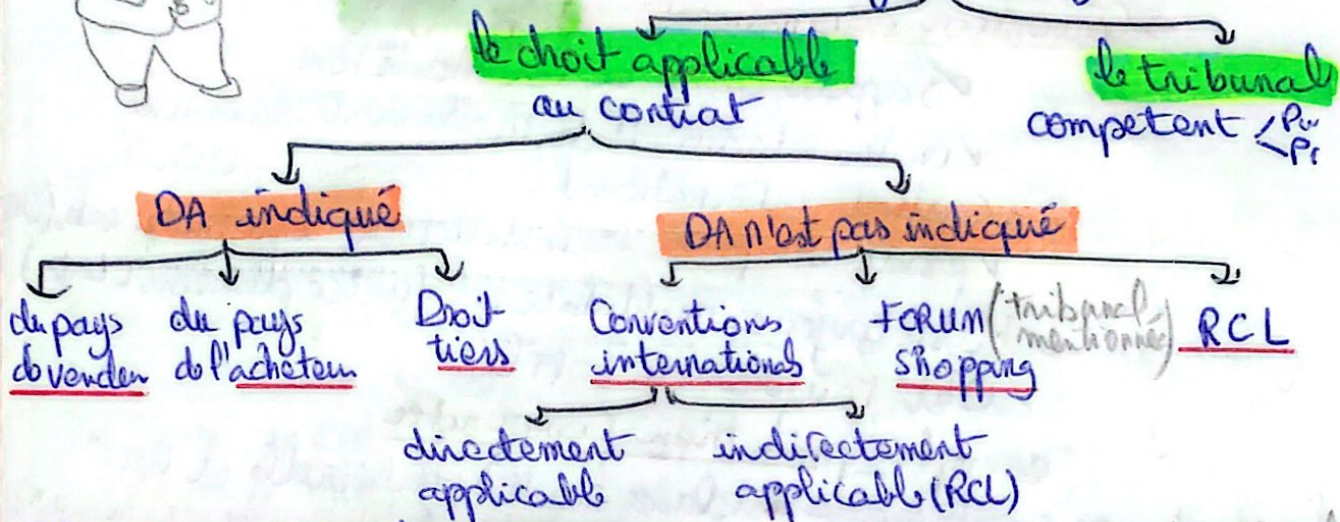 le droit applicable
au contrat
le tribunal
competent
DA indiqué
DA n'est pas indiqué
du pays
du vendeur
du pays
de l'acheteur
Droit
tiers
Conventions
internationals
FORUM
shopping
(tribunal
mentionnée)
RCL
directement
applicable
indirectement
applicable (RCL)